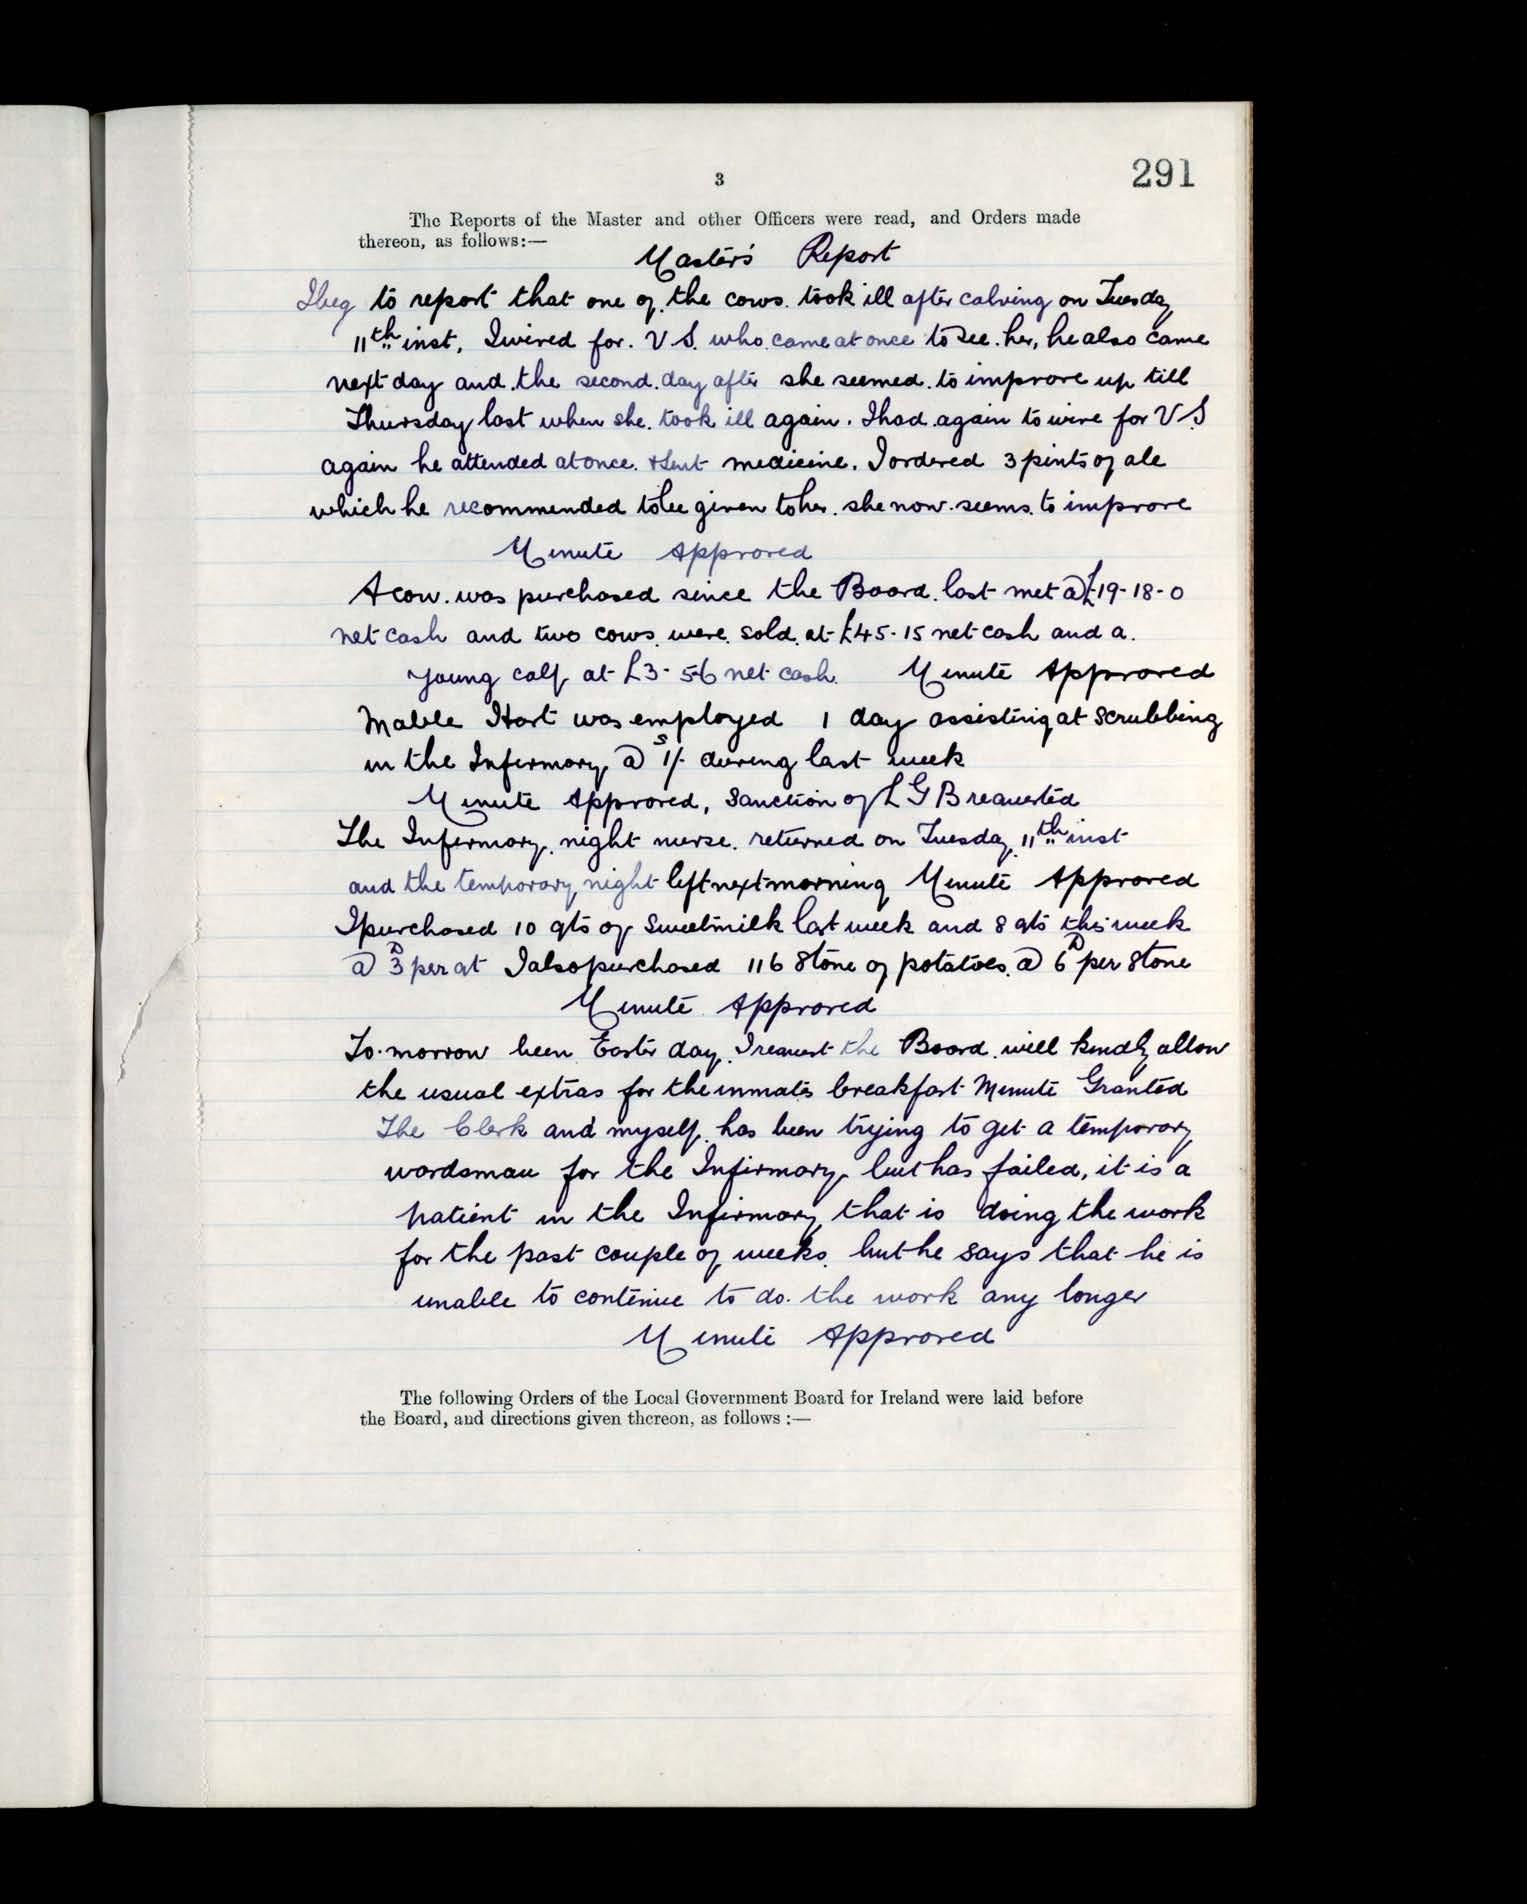 3
291
The Reports of the Master and other Officers were read, and Orders made
thereon, as follows:—
Master's Report
I beg to report that one of the cows took ill after calving on Tuesday
11th inst, I wired for V S. who came at once to see her, he also came
next day and the second day after she seemed to improve up till
Thursday last when she took ill again. I had again to wire for V S
again he attended at once & sent medicine. I ordered 3 pints of ale
which he recommended to be given to her. she now seems to improve
Minute Approved
A cow was purchased since the Board last met @ £19-18-0
net cash and two cows were sold at £45-15 net cash and a
young calf at £3-5-6 net cash. Minute Approved
Mable Hart was employed 1 day assisting at scrubbing
in the Infirmary @ 1s/- during last week
Minute Approved, Sanction of L G B requested
The Infirmary night nurse returned on Tuesday 11th inst
and the temporary night left next morning Minute Approved
I purchased 10 qts of Sweetmilk last week and 8 qts this week
@ 3D per qt I also purchased 116 Stone of potatoes @ 6D per Stone
Minute Approved
To-morrow been Easter day I request the Board will kindly allow
the usual extras for the inmates breakfast Minute Granted
The Clerk and myself has been trying to get a temporary
wardsman for the Infirmary but has failed, it is a
patient in the Infirmary that is doing the work
for the past couple of weeks but he says that he is
unable to continue to do the work any longer
Minute Approved
The following Orders of the Local Government Board for Ireland were laid before
the Board, and directions given thereon, as follows :—